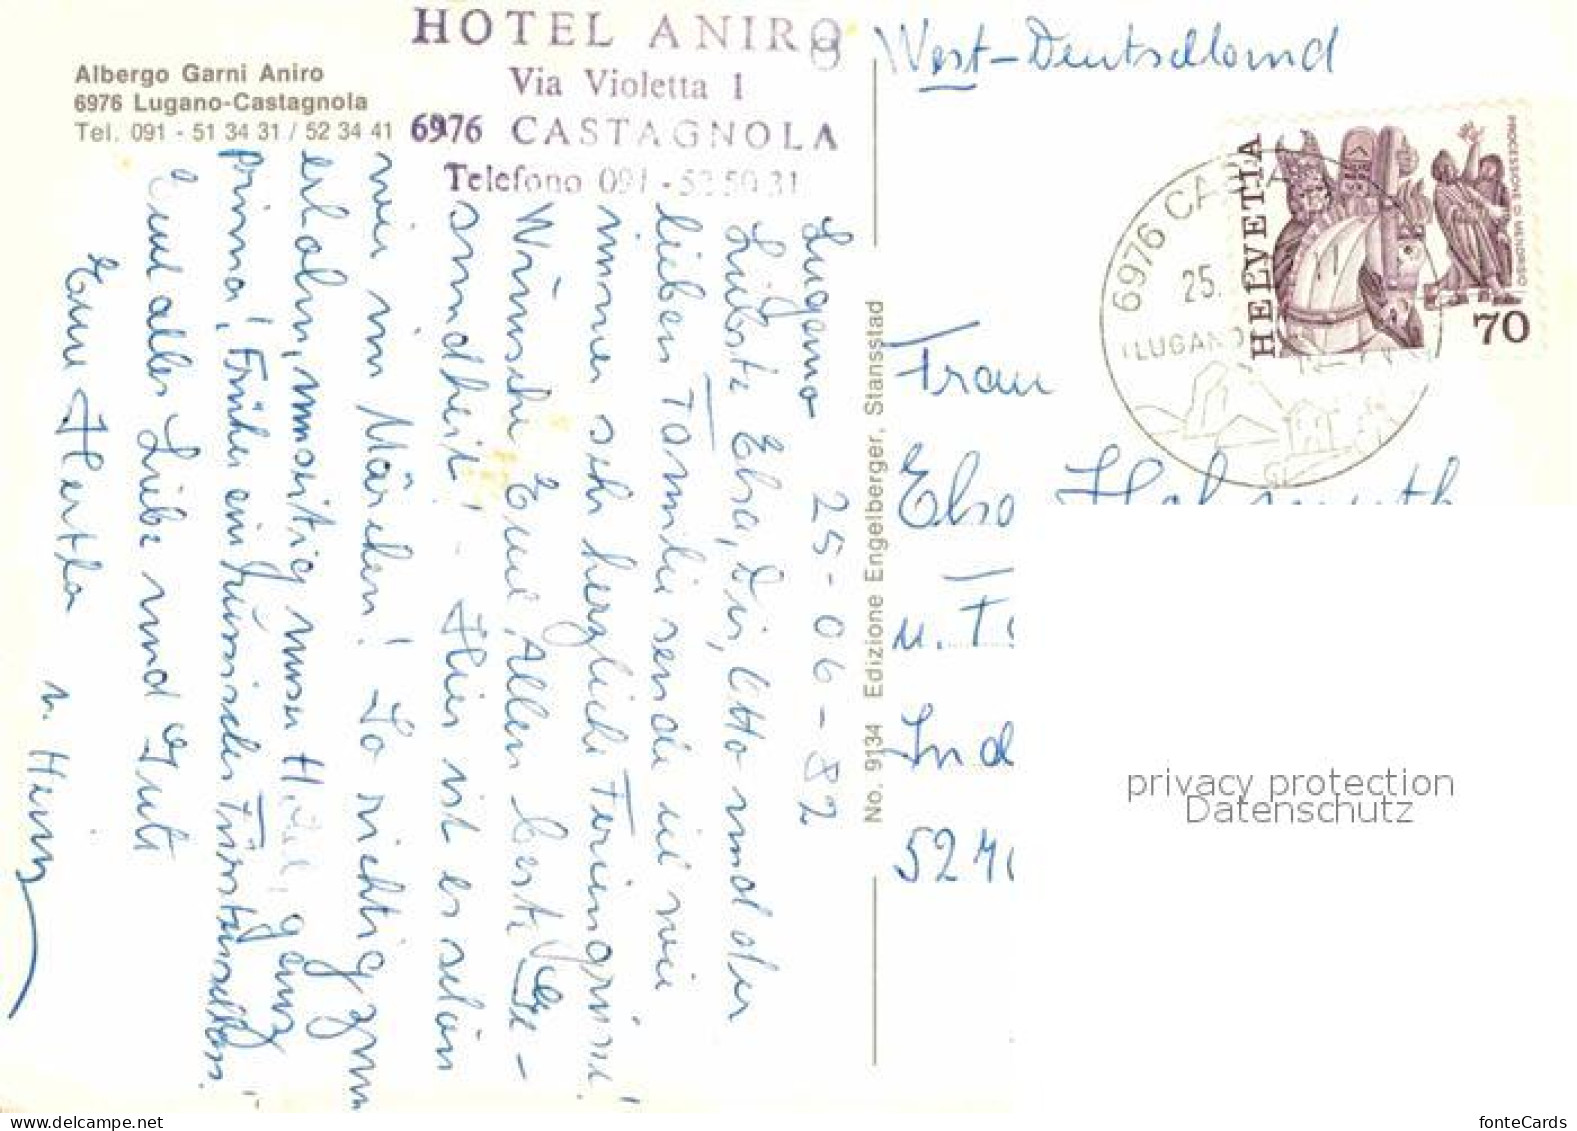 Albergo Garni Aniro
6976 Lugano-Castagnola
Tel. 091 - 51 34 31 / 52 34 41
HOTEL ANIRO
Via Violetta 1
6976 CASTAGNOLA
Telefono 091 - 52 50 31
Lugano 25-06-82
Liebste Elsa, Dir, Otto und der
lieben Familie sende ich wie
immer sehr herzliche Feriengrüsse!
Wünsche Euch Allen beste Ge-
sundheit! - Hier ist es schön
wie im Märchen! So richtig zum
erholn, ruhig unser Hotel, ganz
prima! Früher ein russischer Fürst
Euch alles Liebe und Gute
Eure Hertha
u. Heinz
No. 9134 Edizione Engelberger, Stansstad
West-Deutschland
HELVETIA
PROCESSIONE DI MENDRISIO
70
6976 CA
25.
LUGANO
Frau
Elsa
u.
Ind
privacy protection
Datenschutz
www.delcampe.net
fonteCards